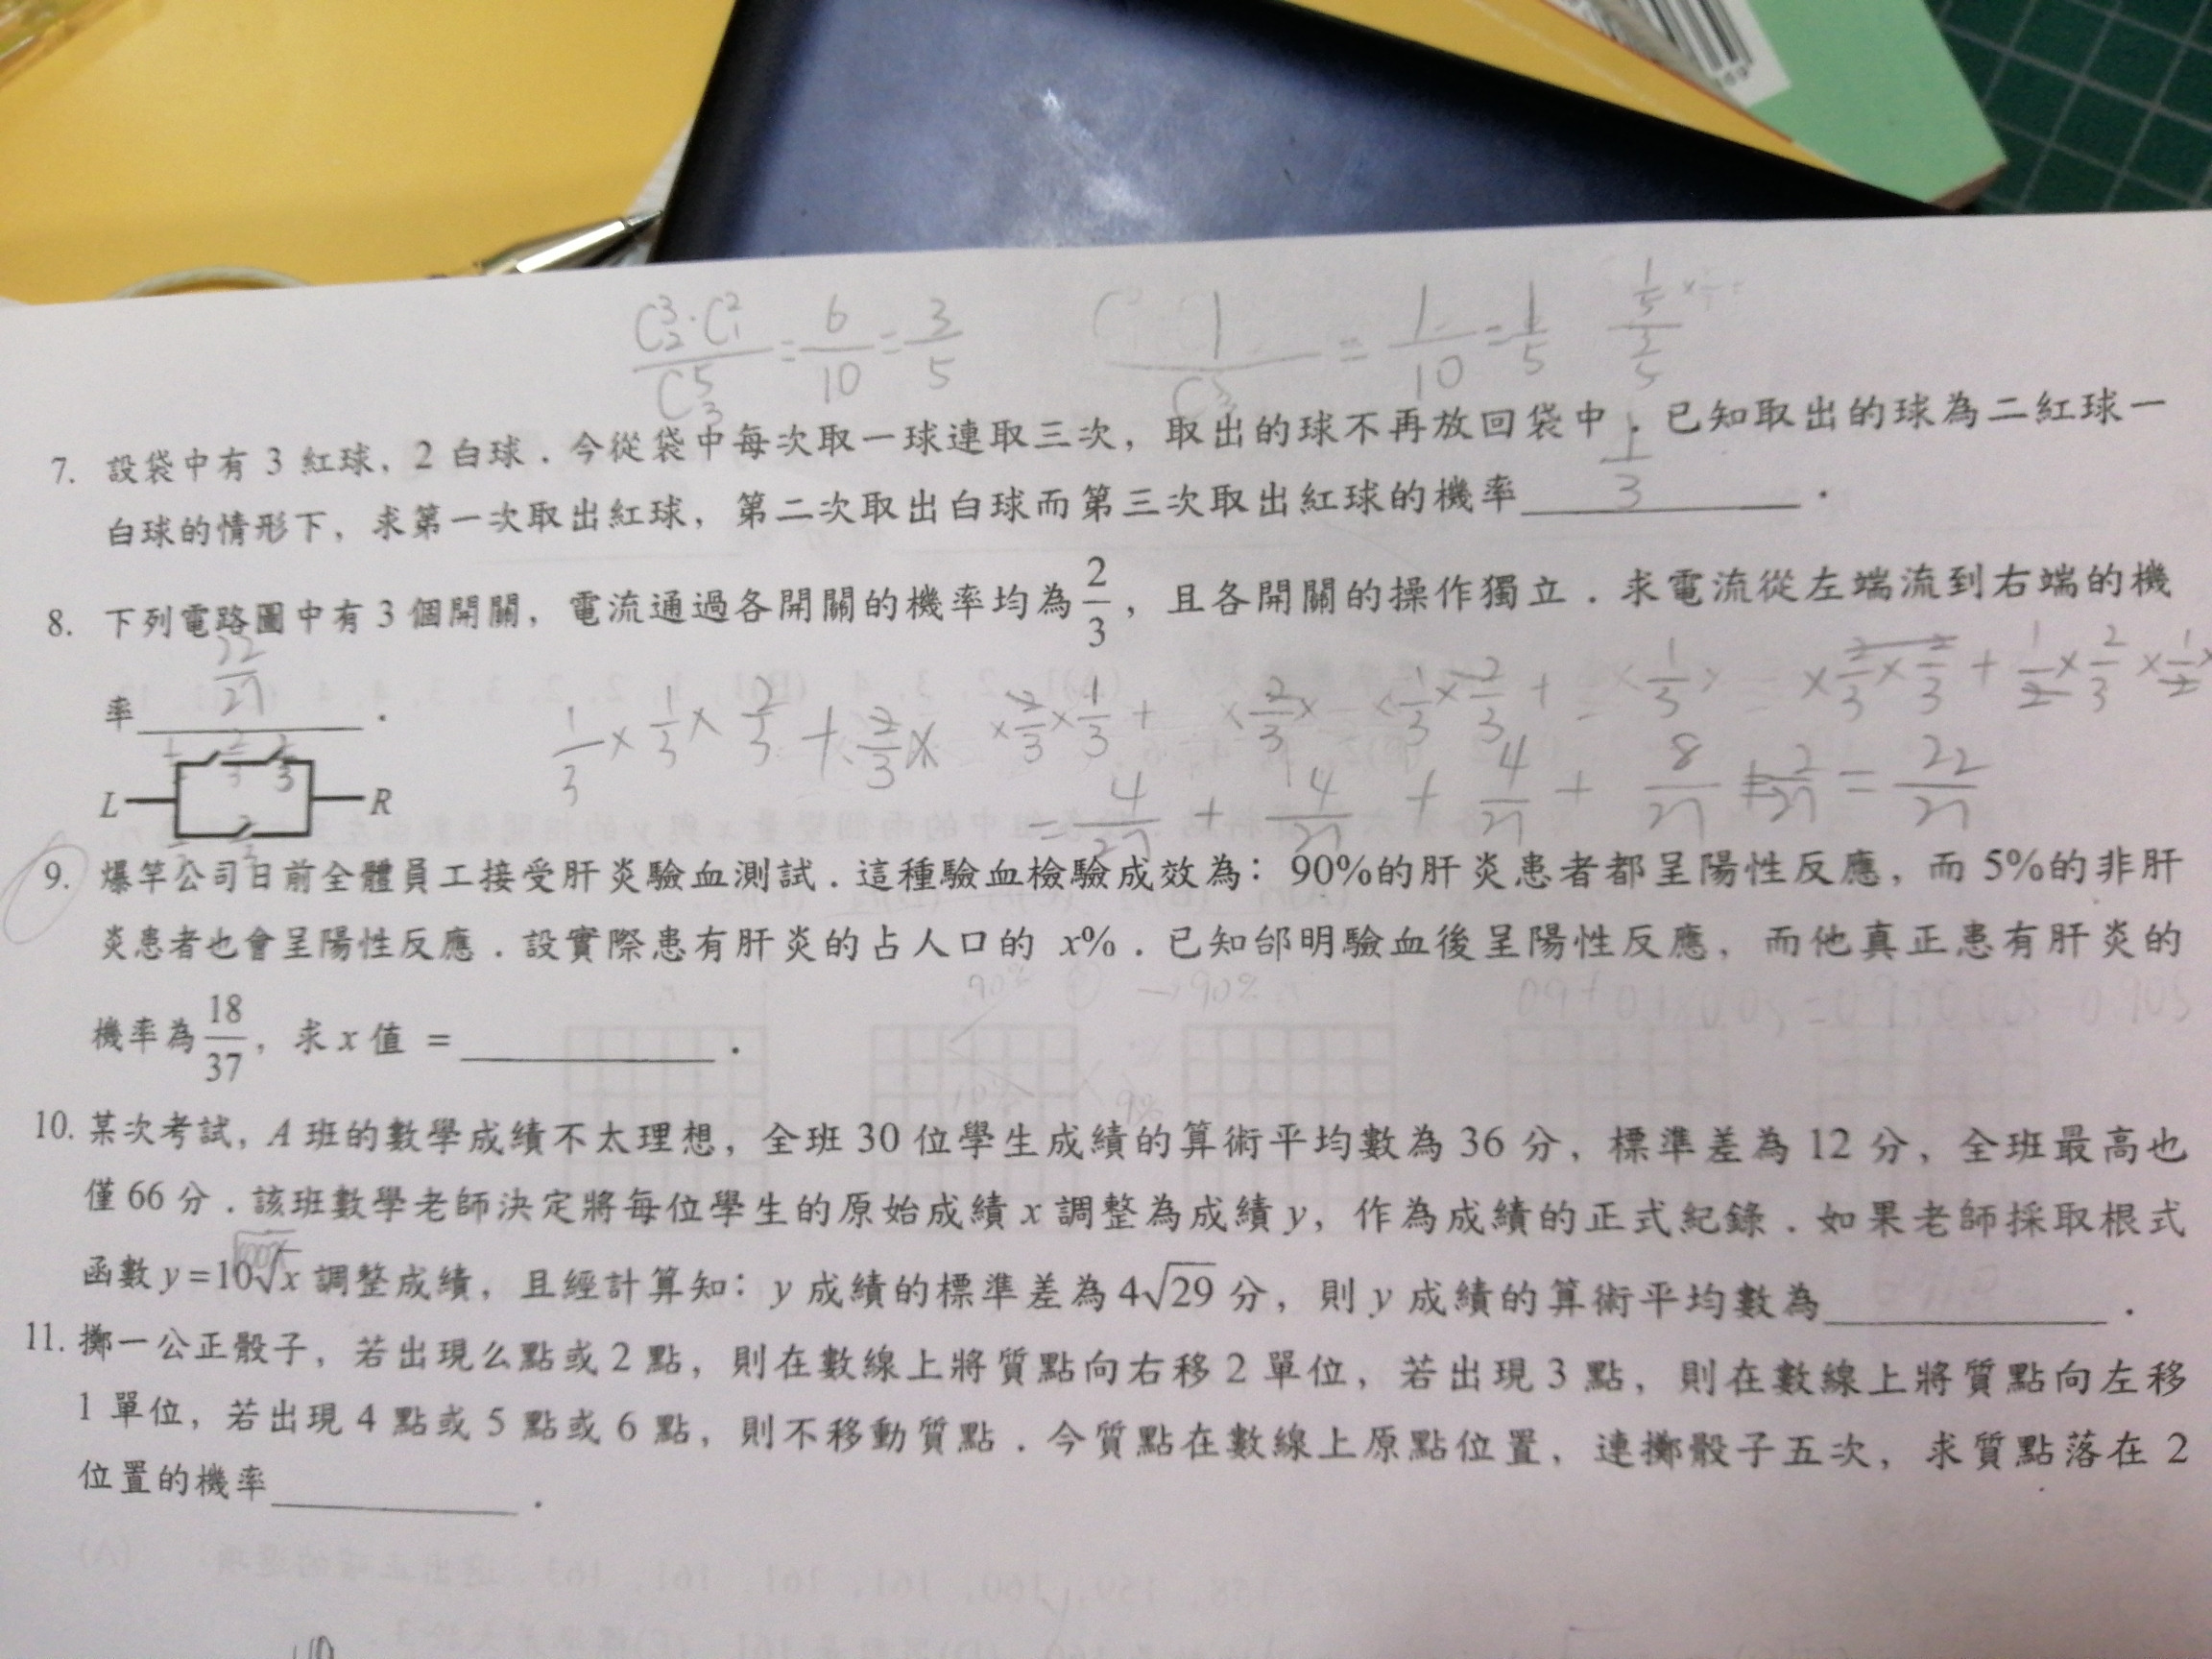 C³₂·C²₁ / C⁵₃ = 6/10 = 3/5
1/10 = 1/5
7. 設袋中有 3 紅球, 2 白球．今從袋中每次取一球連取三次, 取出的球不再放回袋中．已知取出的球為二紅球一
白球的情形下, 求第一次取出紅球, 第二次取出白球而第三次取出紅球的機率 1/3 ．
8. 下列電路圖中有 3 個開關, 電流通過各開關的機率均為 2/3, 且各開關的操作獨立．求電流從左端流到右端的機
率 22/27 ．
1/3 × 1/3 × 2/3 +
= 4/27 + 4/27 + 4/27 + 8/27 + 2/27 = 22/27
L R
9. 爆竿公司日前全體員工接受肝炎驗血測試．這種驗血檢驗成效為: 90%的肝炎患者都呈陽性反應, 而 5%的非肝
炎患者也會呈陽性反應．設實際患有肝炎的占人口的 x%．已知邰明驗血後呈陽性反應, 而他真正患有肝炎的
90% →90%
機率為 18/37, 求 x 值 = ．
10. 某次考試, A 班的數學成績不太理想, 全班 30 位學生成績的算術平均數為 36 分, 標準差為 12 分, 全班最高也
僅 66 分．該班數學老師決定將每位學生的原始成績 x 調整為成績 y, 作為成績的正式紀錄．如果老師採取根式
函數 y=10√x 調整成績, 且經計算知: y 成績的標準差為 4√29 分, 則 y 成績的算術平均數為 ．
11. 擲一公正骰子, 若出現么點或 2 點, 則在數線上將質點向右移 2 單位, 若出現 3 點, 則在數線上將質點向左移
1 單位, 若出現 4 點或 5 點或 6 點, 則不移動質點．今質點在數線上原點位置, 連擲骰子五次, 求質點落在 2
位置的機率 ．